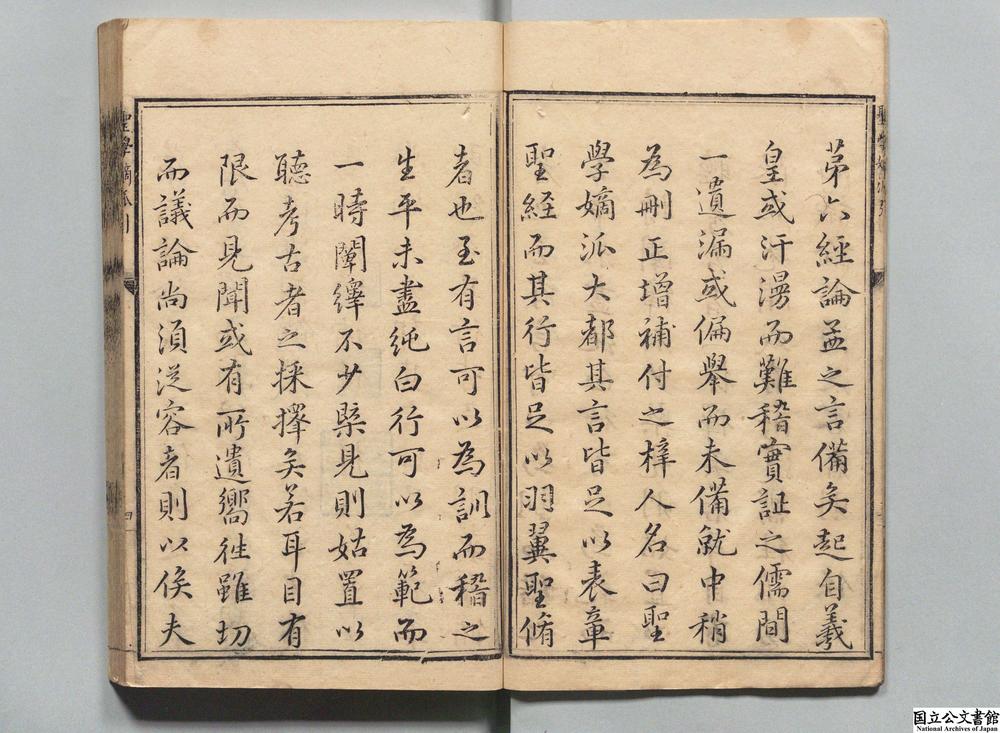 苐六經論孟之言備矣起自羲
皇或汗漫而難稽實証之儒間
一遺漏或偏舉而未備就中稍
為刪正增補付之梓人名曰聖
學嫡派大都其言皆足以表章
聖経而其行皆足以羽翼聖脩
者也至有言可以為訓而稽之
生平未盡純白行可以為範而
一時闡繹不少槩見則姑置以
聽考古者之採擇矣若耳目有
限而見聞或有所遺嚮徃雖切
而議論尚湏从容者則以俟夫
国立公文書館
National Archives of Japan